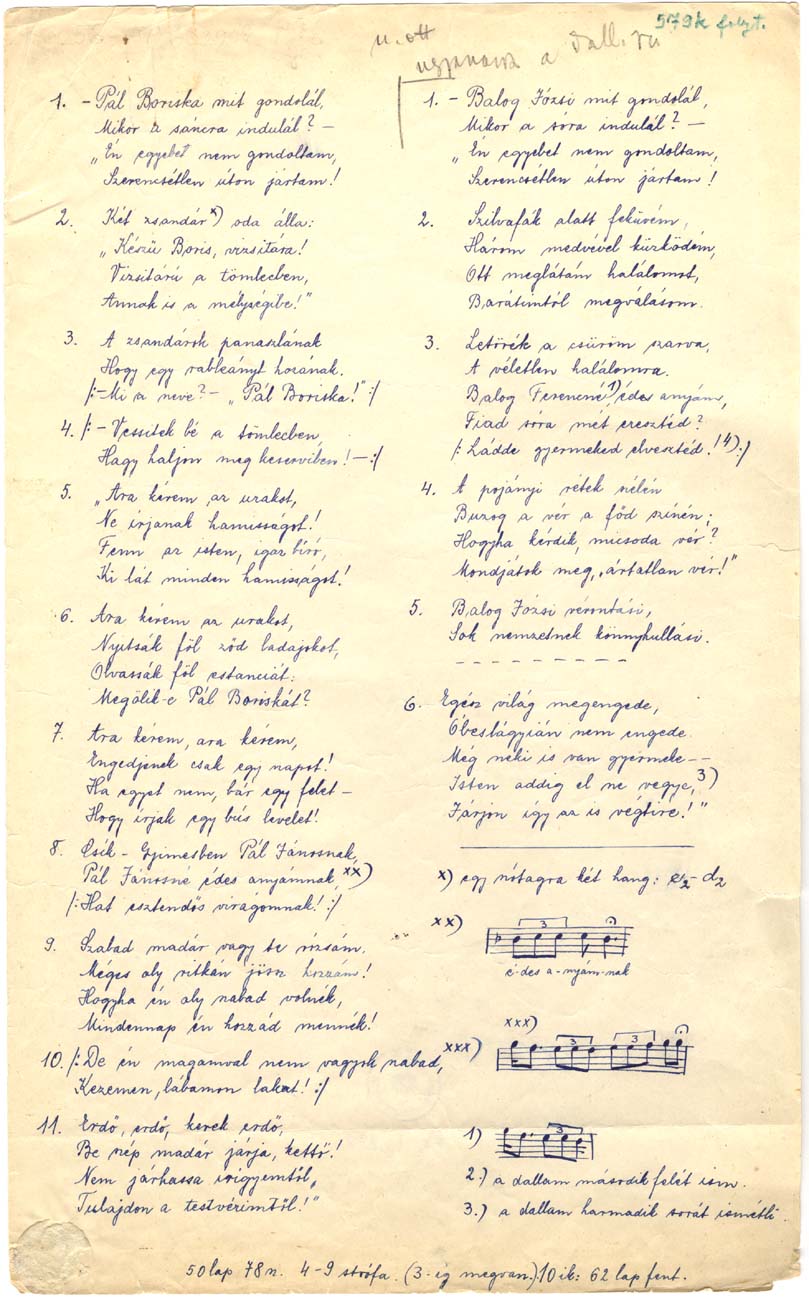 579k folyt.
u. ott
ugyanarra a dall. ra
1. - Pál Boriska mit gondolál,
Mikor a sáncra indulál? —
„Én egyebet nem gondoltam,
Szerencsétlen úton jártam!
2. Két zsandár x) oda álla:
„Készü Boris, vizsitára!
Vizsitárú a tömlecben,
Annak is a mélységibe!"
3. A zsandárok panaszlának
Hogy egy rableányt hozának.
/:-Mi a neve? - „Pál Boriska!":/
4. /: - Vessitek bé a tömlecben,
Hagy haljon meg keserviben! —:/
5. „Ara kérem az urakot,
Ne írjanak hamisságot!
Fenn az isten, igaz bíró,
Ki lát minden hamisságot!
6. Ara kérem az urakot,
Nyitsák föl ződ ladajokot,
Olvassák föl estanciát:
Megölik-e Pál Boriskát?
7. Ara kérem, ara kérem,
Engedjenek csak egy napot!
Ha egyet nem, bár egy felet —
Hogy írjak egy bús levelet!
8. Csík - Gyimesben Pál Jánosnak,
Pál Jánosné édes anyámnak, xx)
/: Hat esztendős virágomnak! :/
9. Szabad madár vagy te rózsám.
Méges oly ritkán jössz hozzám!
Hogyha én oly szabad volnék,
Mindennap én hozzád mennék!
10. /: De én magamval nem vagyok szabad, xxx)
Kezemen, lábamon lakat! :/
11. Erdő, erdő, kerek erdő,
Be szép madár járja, kettő!
Nem járhassa irigyemtől,
Tulajdon a testvérimtől!"
1. - Balog Józsi mit gondolál,
Mikor a sóra indulál? —
„Én egyebet nem gondoltam,
Szerencsétlen úton jártam!
2. Szilvafák alatt feküvém,
Három medvével küzködém,
Ott meglátám halálomot,
Barátimtól megválásom.
3. Letörék a csűröm szarva,
A véletlen halálomra.
Balog Ferencné, 1) édes anyám,
Fiad sóra mét eresztéd?
/: Ládde gyermeked elvesztéd! 4) :/
4. A pojányi rétek szélén
Buzog a vér a főd színén;
Hogyha kérdik, micsoda vér?
Mondjátok meg, „ártatlan vér!"
5. Balog Józsi vérontási,
Sok nemzetnek könnyhullási.
- - - - - - - - -
6. Egész világ megengede,
Óbestágyián nem engede.
Még neki is van gyermeke - -
Isten addig el ne vegye, 3)
Járjon így az is végtire!"
x) egy nótagra két hang: e2 - d2
xx)
3
é-des a-nyám-nak
xxx)
xxx)
3 3
1)
3
2.) a dallam második felét ism.
3.) a dallam harmadik sorát ismétli.
50 lap 78 sz. 4-9 strófa. (3-ig megvan.) 10 ik: 62 lap fent.